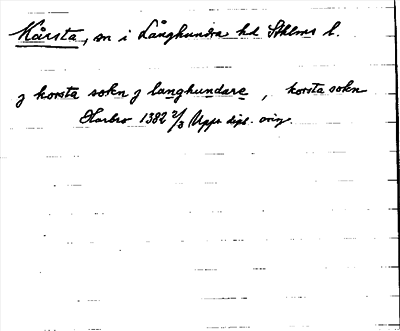 Kårsta, sn i Långhundra hd Sthlms l.
ȝ korsta sokn ȝ langhundare, korsta sokn
Harbro 1382 2/3 Upps dipl. orig.